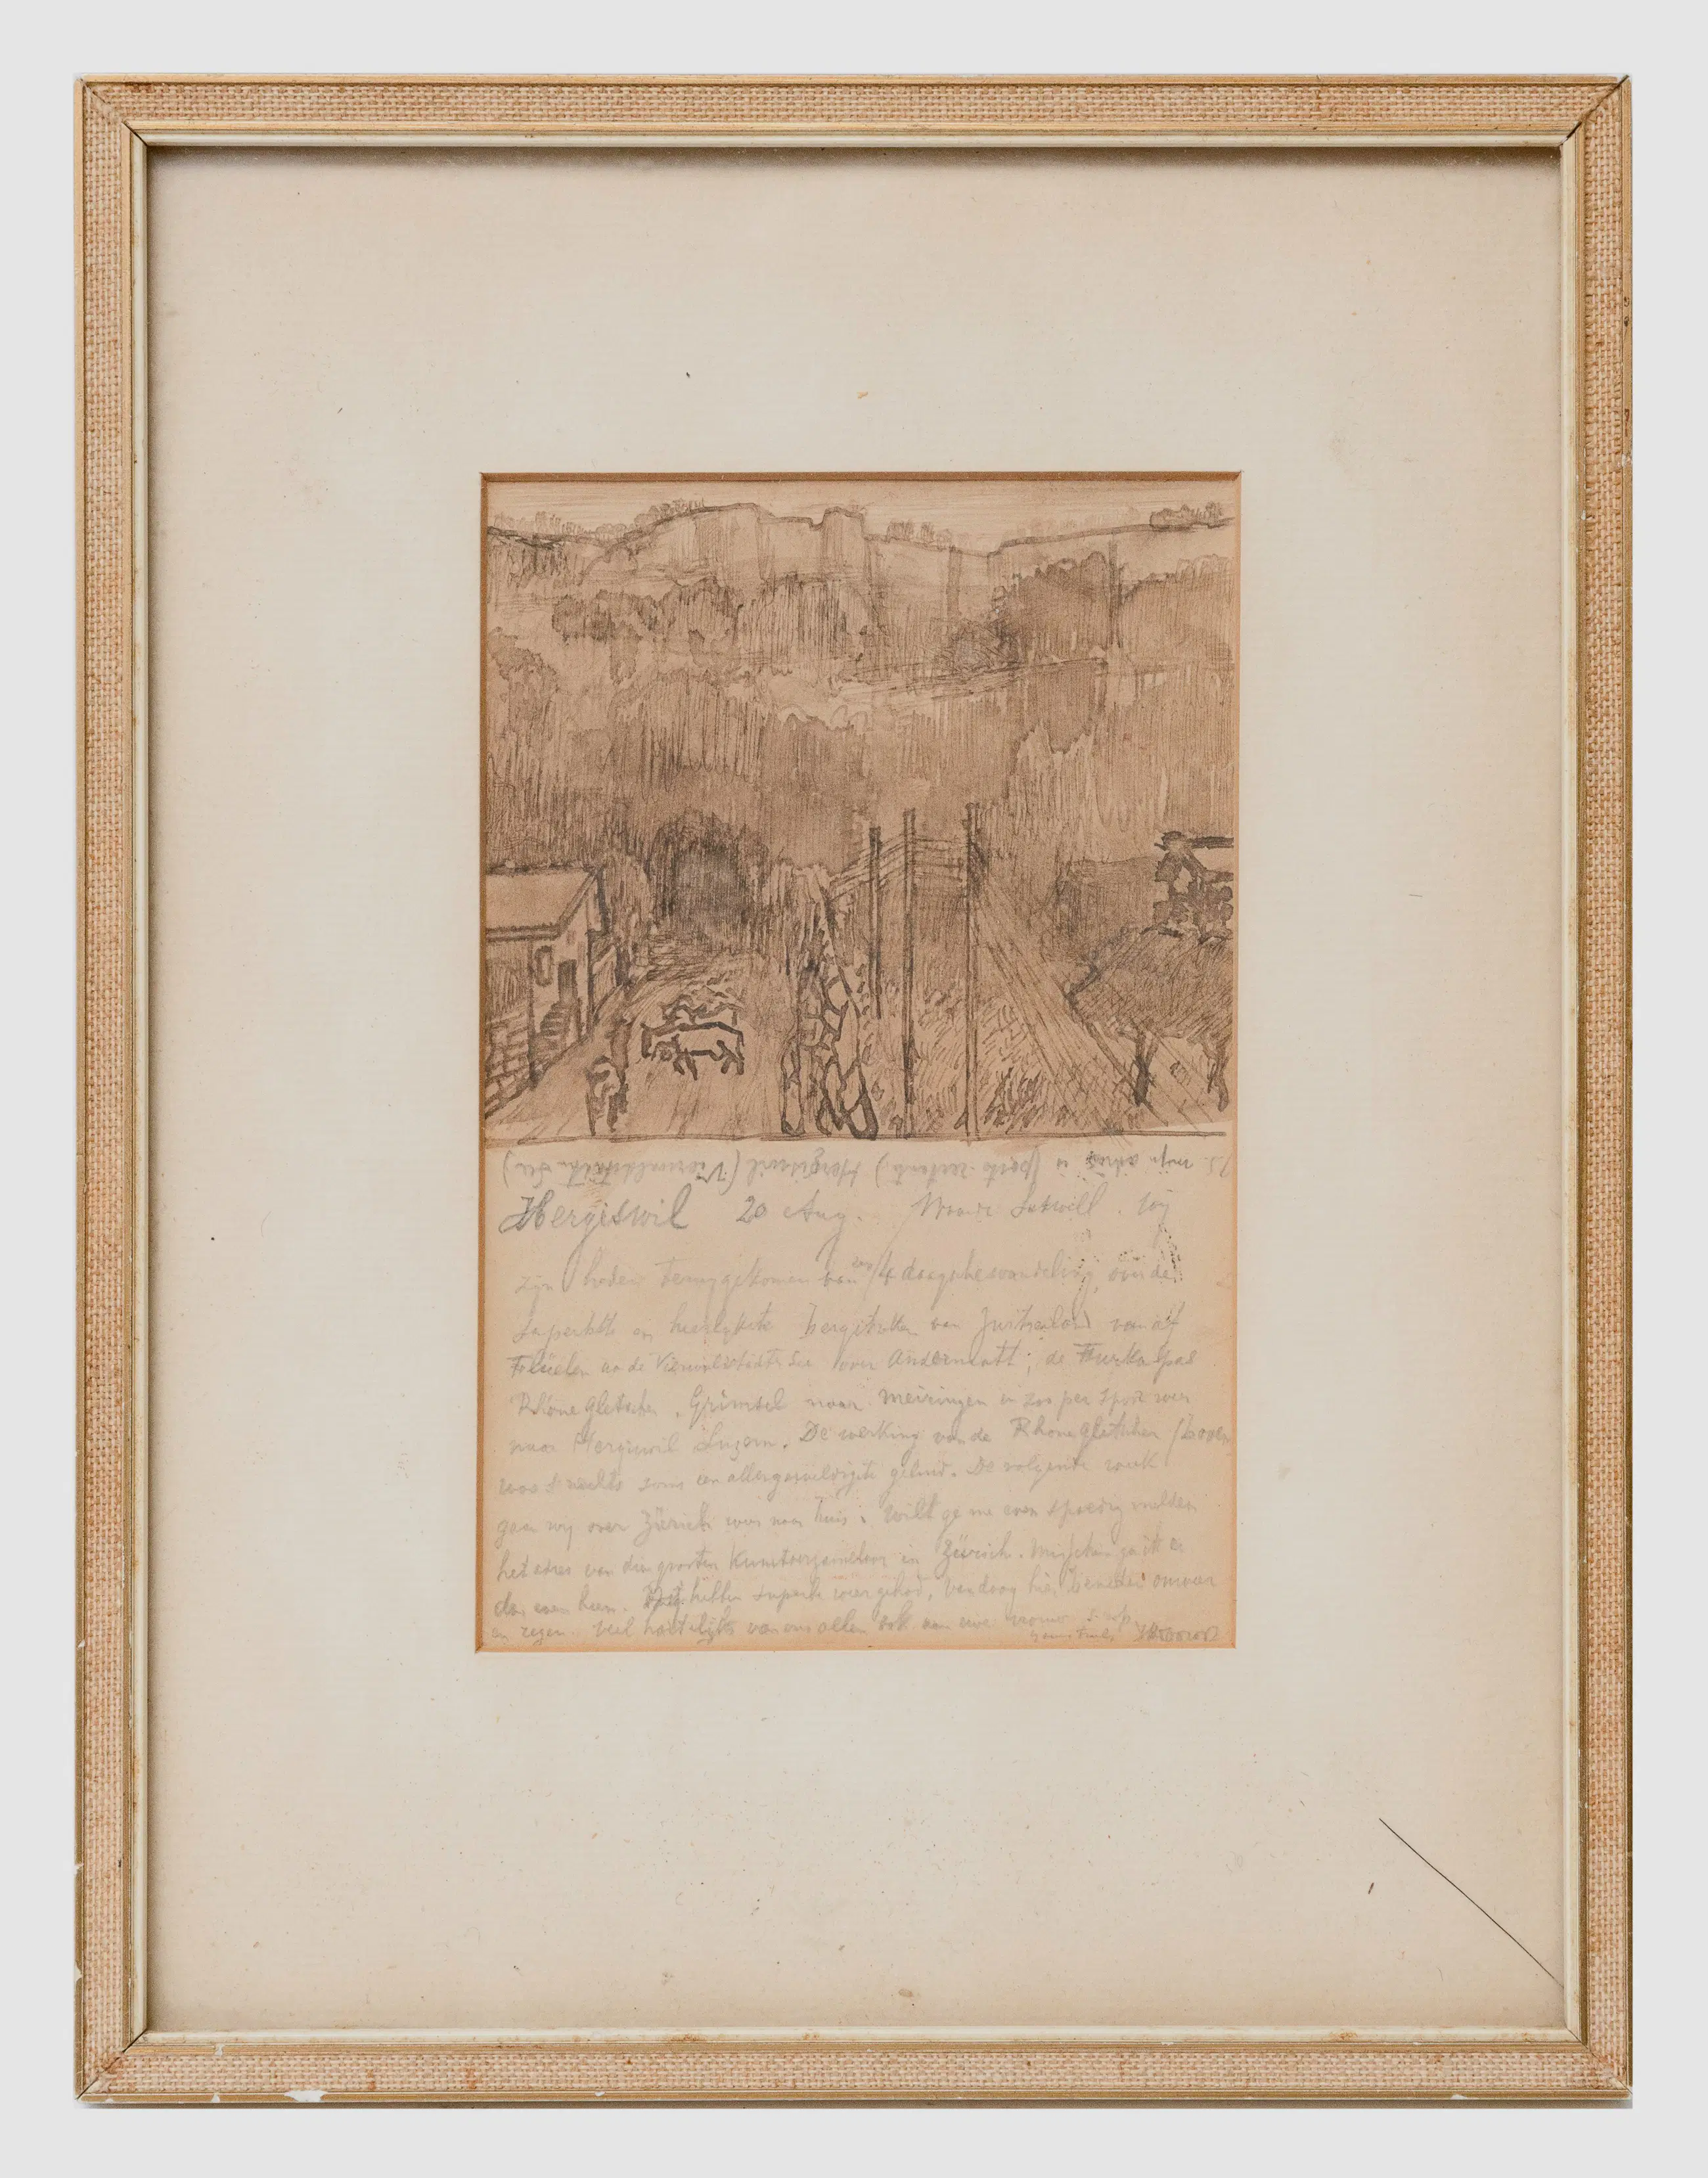 P.S. mijn adres is (poste restante) Hergiswil (Vierwaldstätter See)
Hergiswil 20 Aug. Waarde wij
zijn heden teruggekomen van een 4 daagsche wandeling over de
superbste en heerlijkste bergstreken van Zwitserland vanaf
Flüelen a/d Vierwaldstätter See over Andermatt; de Furkapas
Rhonegletscher, Grimsel naar Meiringen en zoo per spoor weer
naar Hergiswil Luzern. De werking van de Rhonegletscher (boven
was 's nachts soms een allergeweldigste geluid. De volgende week
gaan wij over Zürich weer naar huis. Wilt ge me even spoedig melden
het adres van dien grooten Kunstverzamelaar in Zürich. Misschien ga ik er
dan even heen. Wij hebben superb weer gehad, vandaag hier beneden onweer
en regen. Veel hartelijks van ons allen ook aan uwe vrouw